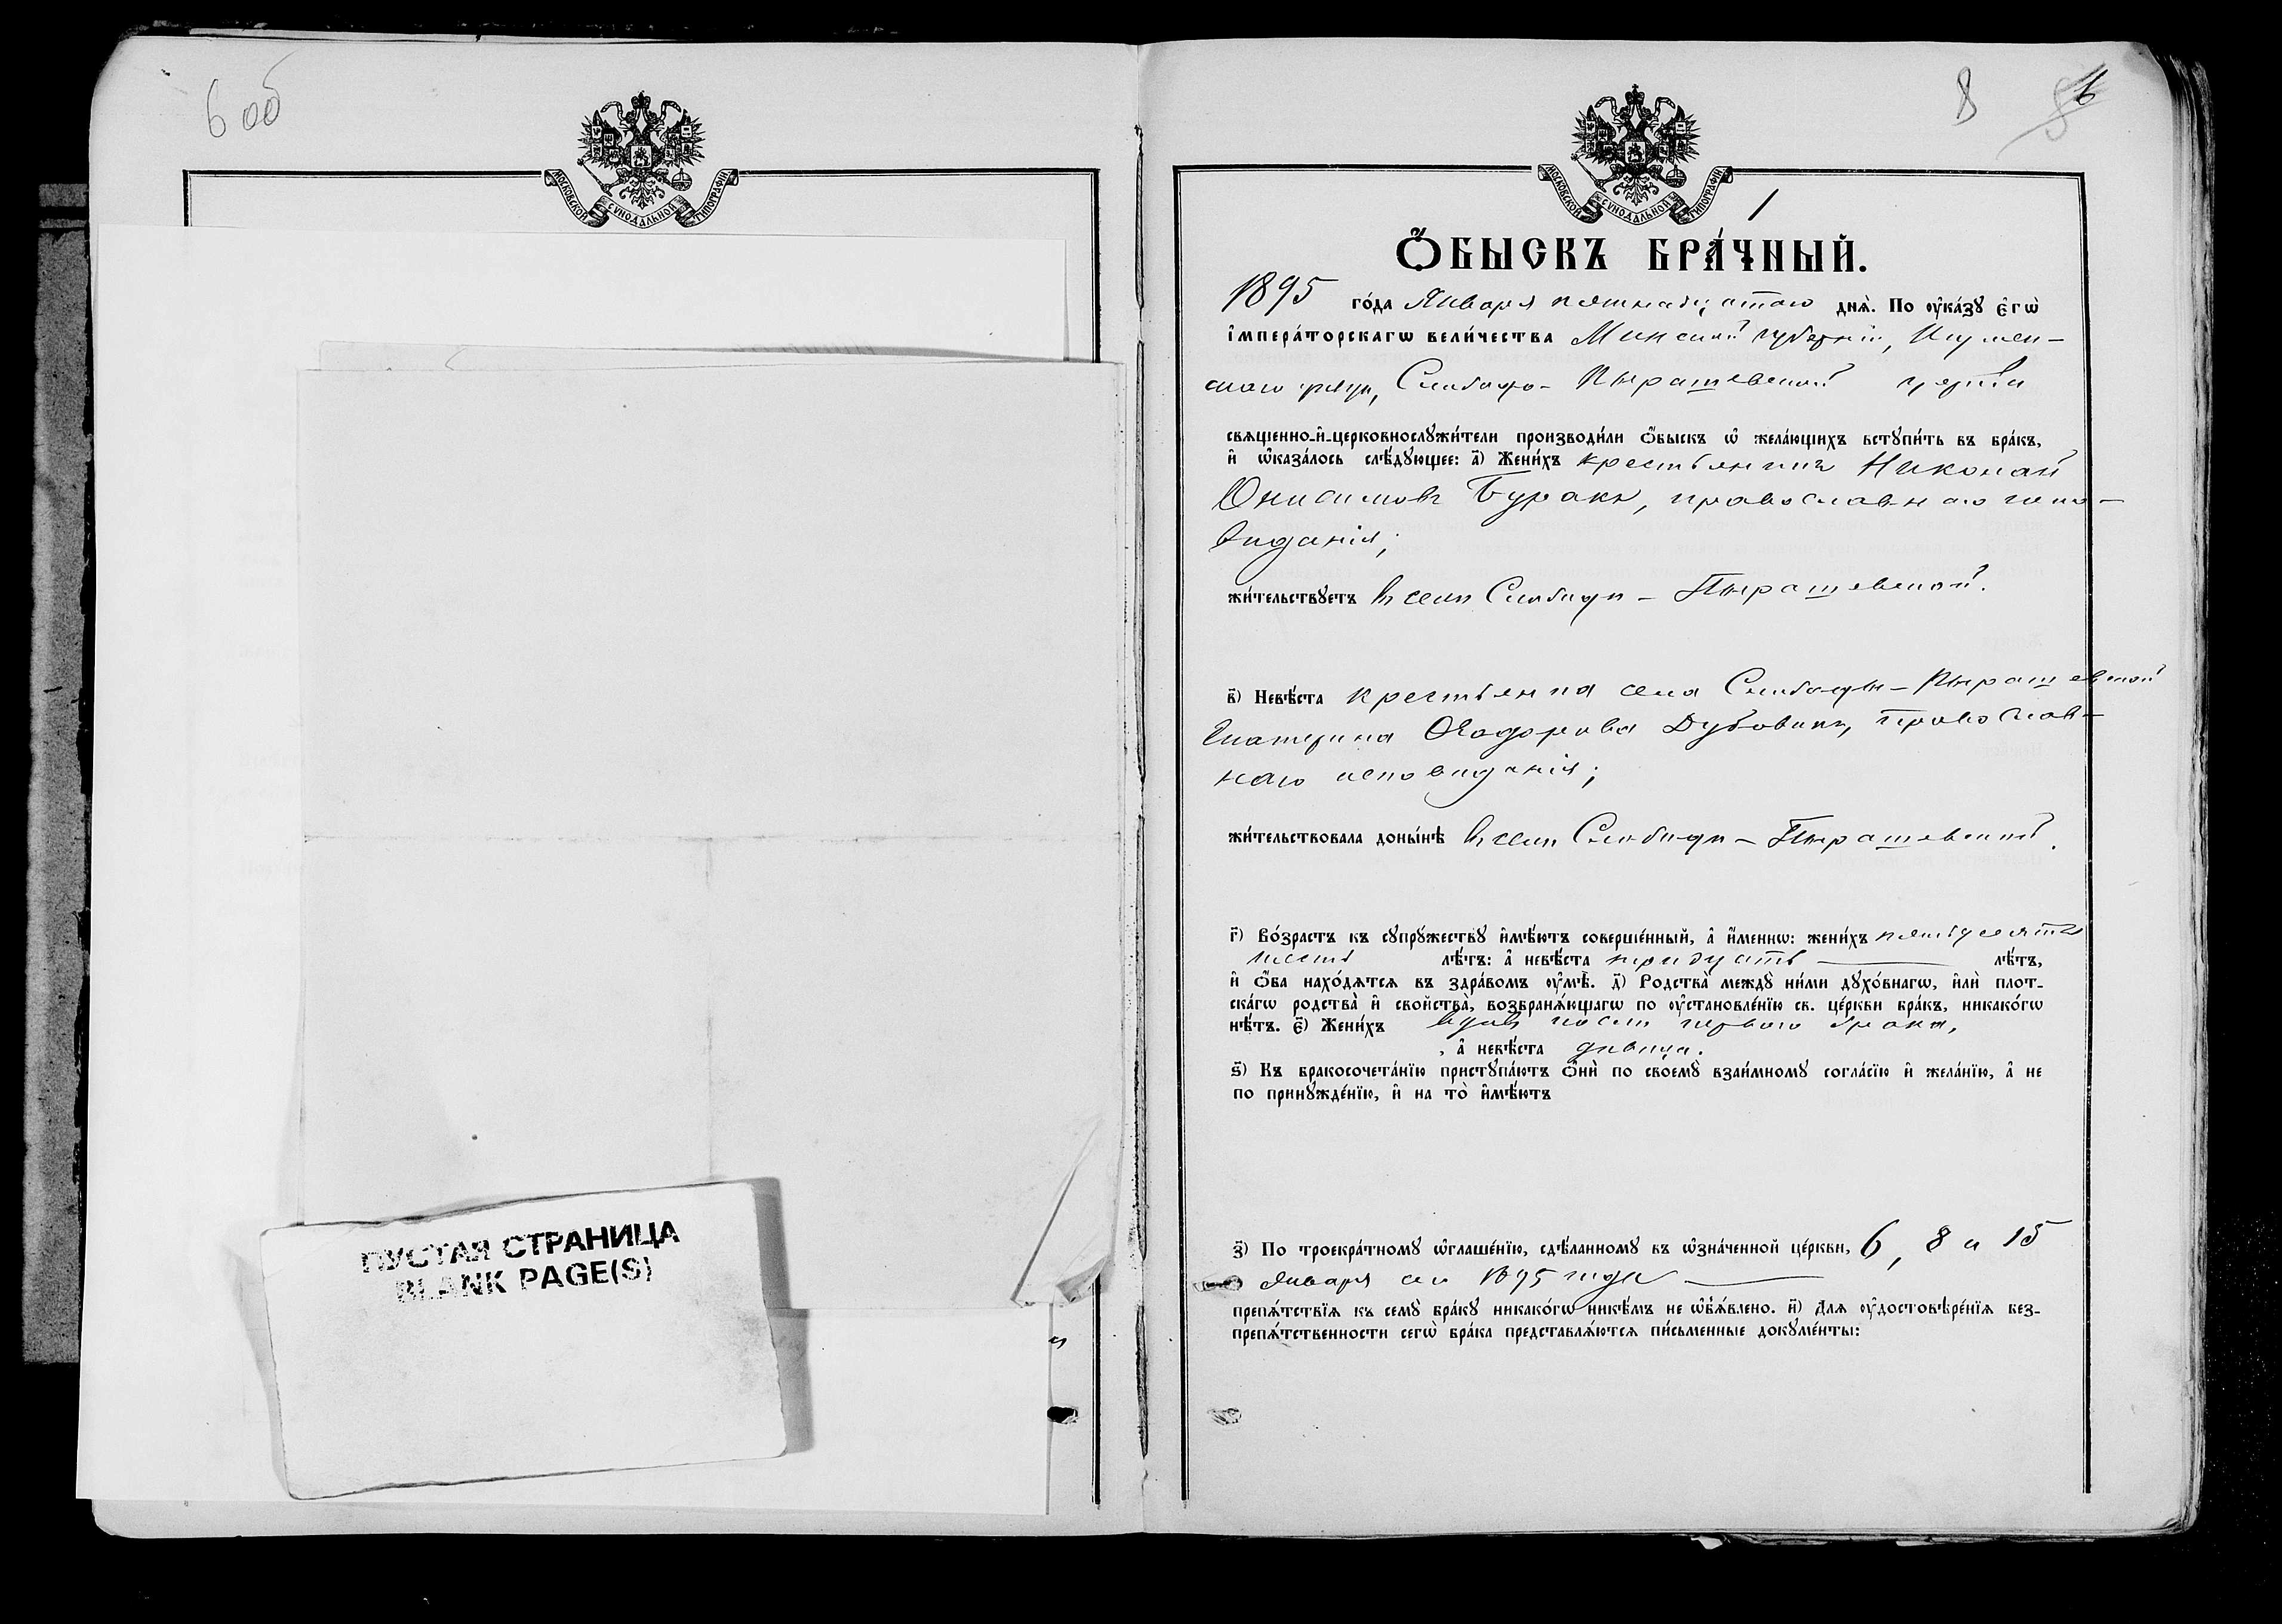 6 об
МОСКОВСКОЙ СѴНОДАЛЬНОЙ ТИПОГРАФІИ
ПУСТАЯ СТРАНИЦА
BLANK PAGE(S)
8 6
МОСКОВСКОЙ СѴНОДАЛЬНОЙ ТИПОГРАФІИ
1
Ѻ҆БЫСКЪ БРА́ЧНЫЙ.
1895 го́да Января пятнадцатаго днѧ̀. По ᲂу҆ка́зꙋ є҆гѡ̀
і҆мпера́торскагѡ вели́чества Минской губерніи, Игумен-
скаго уѣзда, Слободо-Пырашевской церкви
сващенно-и҆-церковнослꙋжи́тели производи́ли ѻ҆́быскъ ѡ҆ жела́ющихъ встꙋпи́ть въ бра́къ,
и҆ ѡ҆каза́лось слѣ́дꙋющее: а҃) Жени́хъ крестьянинъ Николай
Онисимовъ Буракъ, православнаго испо-
вѣданія;
жи́тельствꙋетъ въ селѣ Слободѣ-Пырашевской.
в҃) Невѣ́ста крестьянка села Слободы-Пырашевской
Екатерина Ѳеодорова Дубовикъ, православ-
наго исповѣданія;
жи́тельствовала доны́нѣ въ селѣ Слободѣ-Пырашевской.
г҃) Во́зрастъ къ сꙋпрꙋжествꙋ и҆мѣ́ютъ соверше́нный, а҆ и҆́меннѡ: жени́хъ пятьдесятъ
шесть лѣ́тъ: а҆ невѣ́ста тридцать лѣ́тъ,
и҆ ѻ҆́ба нахо́дѧтсѧ въ здра́вомъ ᲂу҆мѣ̀. д҃) Родства̀ междꙋ̀ ни́ми дꙋхо́внагѡ, и҆лѝ плот-
ска́гѡ родства̀ и҆ свойства̀, возбранѧ́ющагѡ по ᲂу҆становле́нїю св. це́ркви бра́къ, никако́гѡ
нѣ́тъ. є҃) Жени́хъ вдовъ послѣ перваго брака,
, а҆ невѣ́ста дѣвица.
ѕ҃) Къ бракосочета́нїю пристꙋпа́ютъ ѻ҆нѝ по своемꙋ̀ взаи́мномꙋ согла́сїю и҆ жела́нїю, а҆ не
по принꙋжде́нїю, и҆ на то̀ и҆мѣ́ютъ
з҃) По троекра́тномꙋ ѡ҆глаше́нїю, сдѣ́ланномꙋ въ ѡ҆зна́ченной це́ркви, 6, 8 и 15
Января сего 1895 года
препѧ́тствїѧ къ семꙋ̀ бра́кꙋ никако́гѡ никѣ́мъ не ѡ҆б̾ѧ́влено. и҃) Длѧ ᲂу҆достовѣре́нїѧ без-
препѧ́тственности сегѡ̀ бра́ка представлѧ́ютсѧ пи́сьменные докꙋме́нты: